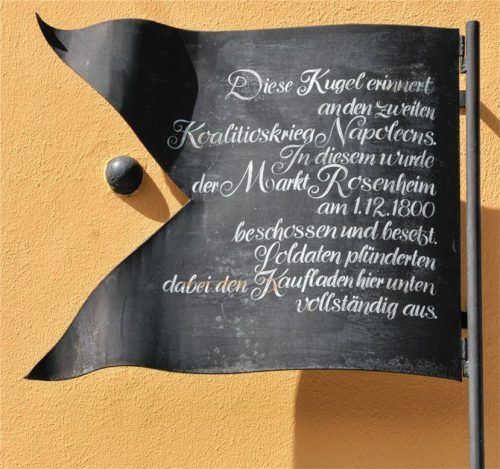 Diese Kugel erinnert
an den zweiten
Koalitioskrieg Napoleons.
In diesem wurde
der Markt Rosenheim
am 1.12.1800
beschossen und besetzt.
Soldaten plünderten
dabei den Kaufladen hier unten
vollständig aus.